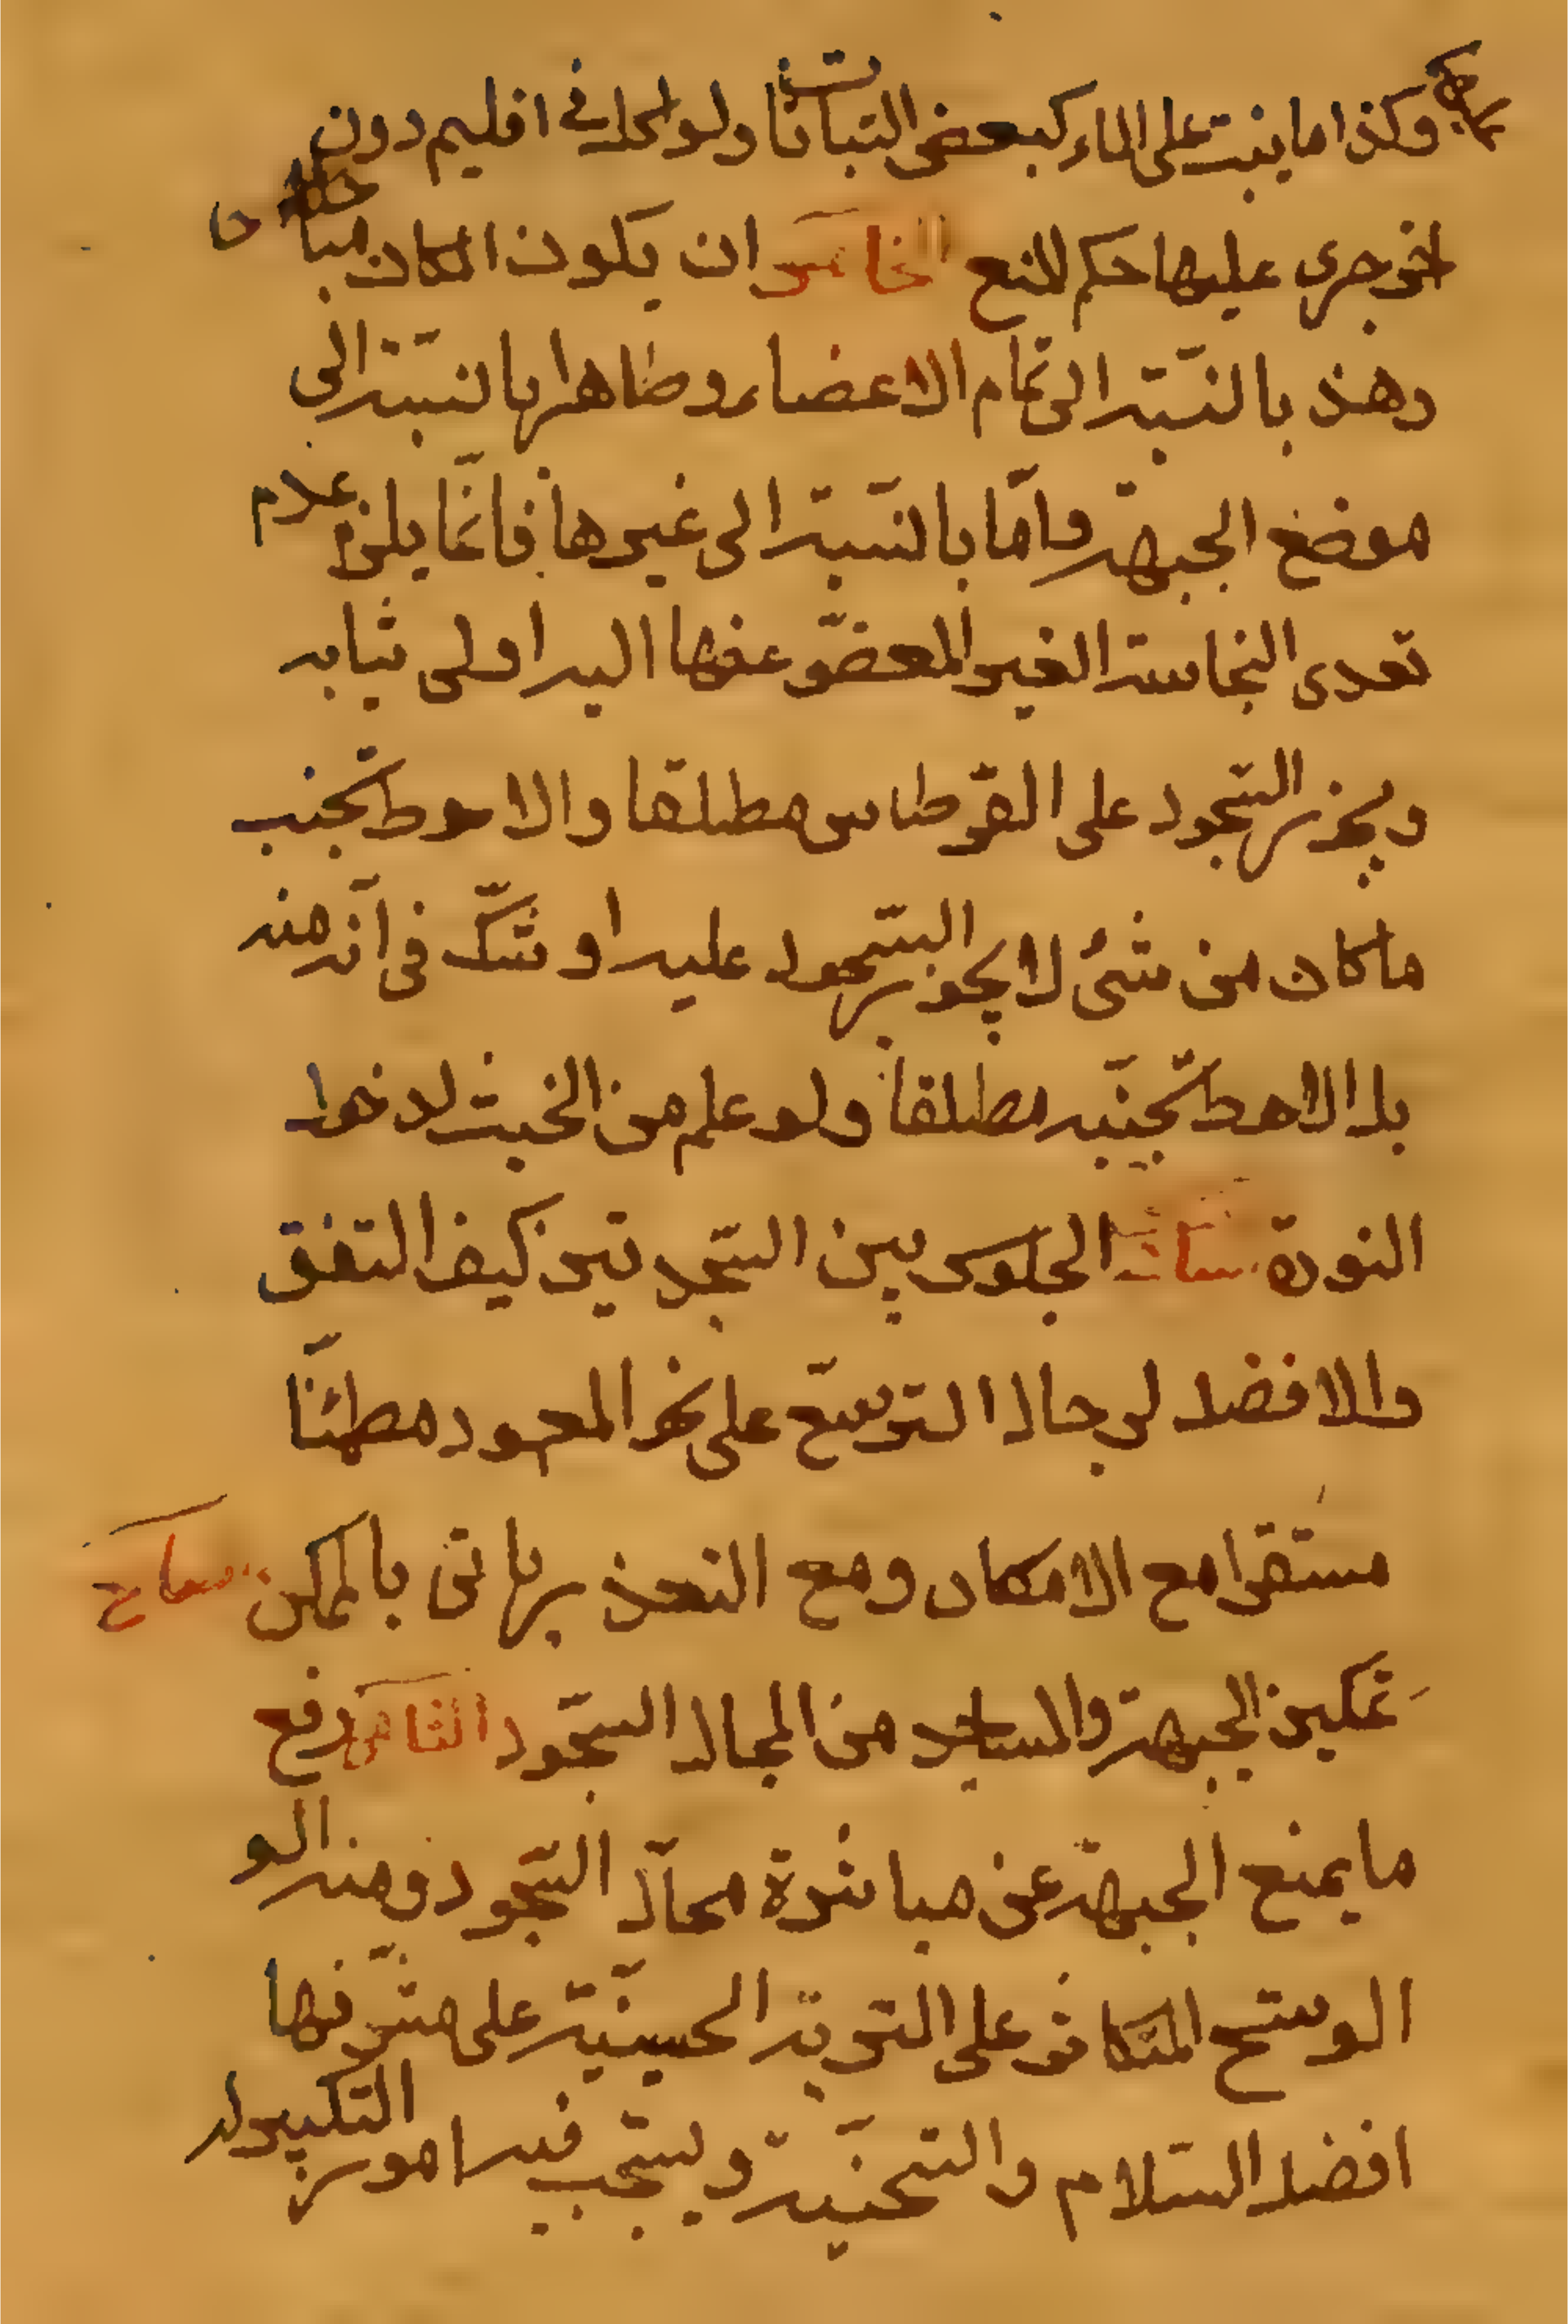 وكذا ما ينبت على الماء كبعض النباتات ولو اكل في اقليم دون
اخر جرى عليها حكم المنع الخامس ان يكون المكان مباحا
وهذ بالنسبة الى تمام الاعضاء وطاهرا بالنسبة الى
موضع الجبهة واما بالنسبة الى غيرها فانما يلزم عدم
تعدى النجاسة الغير المعضو عنها اليه او لى ثيابه
ويجز السجود على القرطاس مطلقا والاحوط تجنب
ما كان من شئ لا يجوز السجود عليه او شك في انه منه
بل الاحط تجنبه مطلقا ولو علم من الخبث لدخول
النورة السادس الجلوس بين السجدتين كيف التفق
والافضل لرجال التوسع على نحو المعهود مطمئنا
مستقرا مع الامكان ومع التعذر ياتى بالممكن السابع
تمكين الجبهة والمساجد من المحال السجود الثامن رفع
ما يمنع الجبهة عن مباشرة محال السجود ومنه الو
الوسخ المتكاثر على التربة الحسينية على مشرفها
افضل السلام والتحية ويستحب فيه امور التكبير له